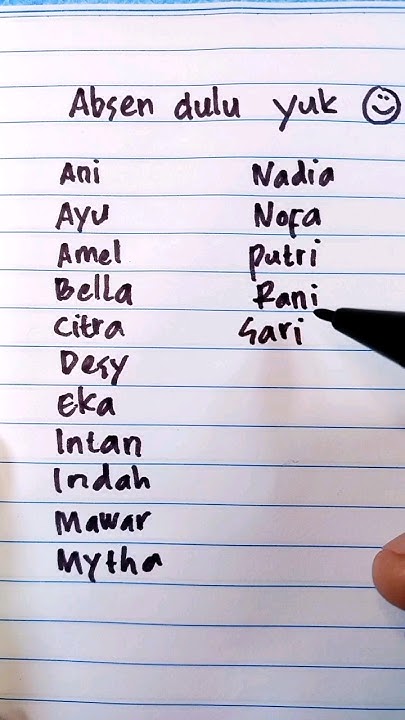 Absen dulu yuk
Ani
Ayu
Amel
Bella
Citra
Desy
Eka
Intan
Indah
Mawar
Mytha
Nadia
Nofa
Putri
Rani
Sari